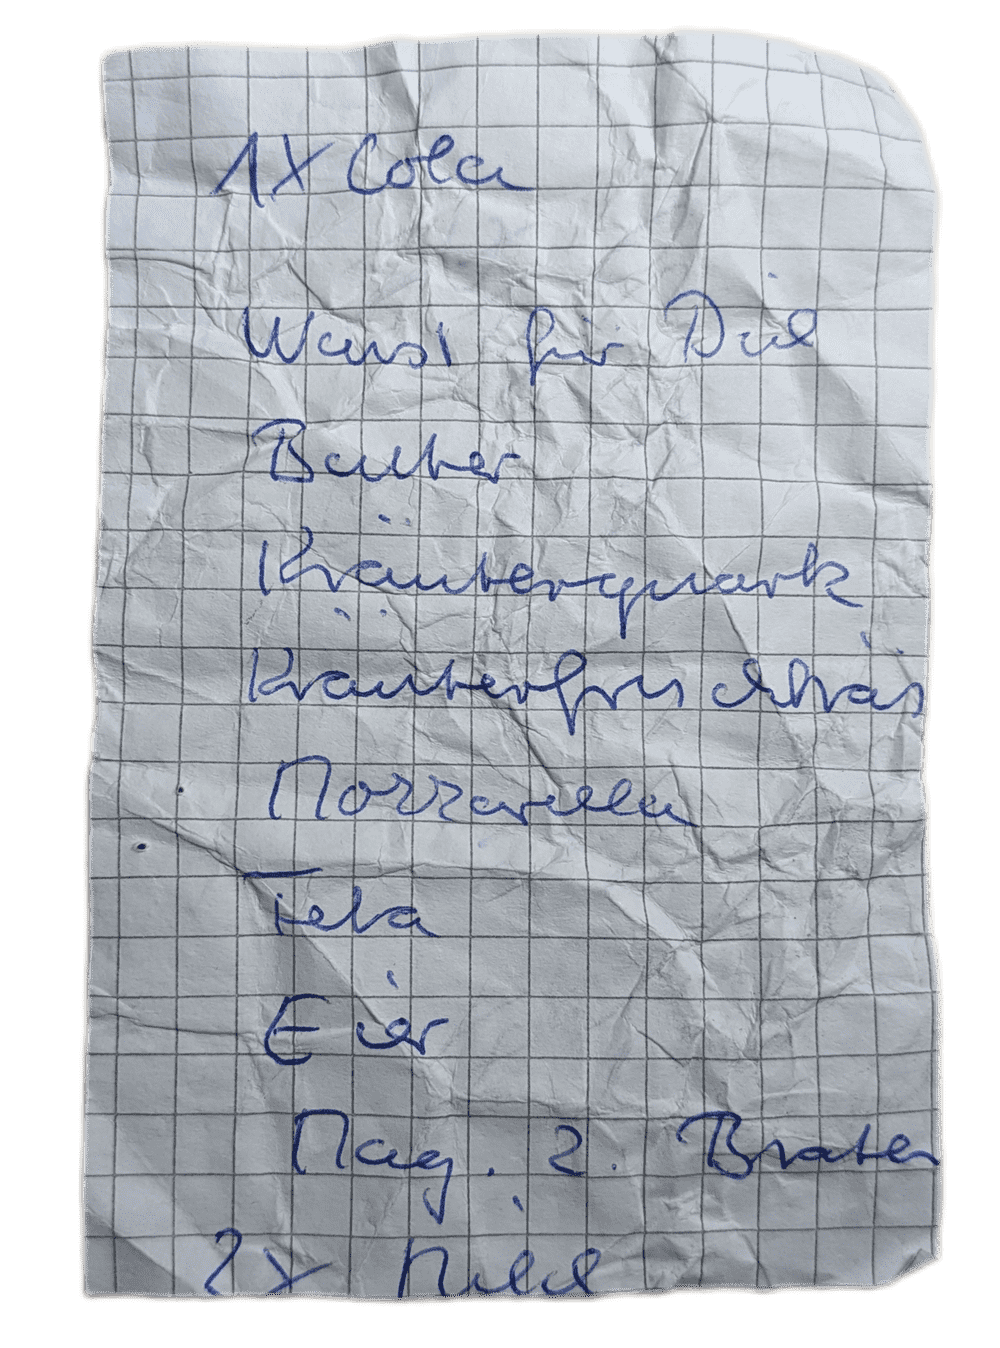 1x Cola
Wurst für Did
Butter
Kräuterquark
Kräuterfrischkäs
Mozzarella
Feta
Eier
Mag. z. Braten
2x Milch